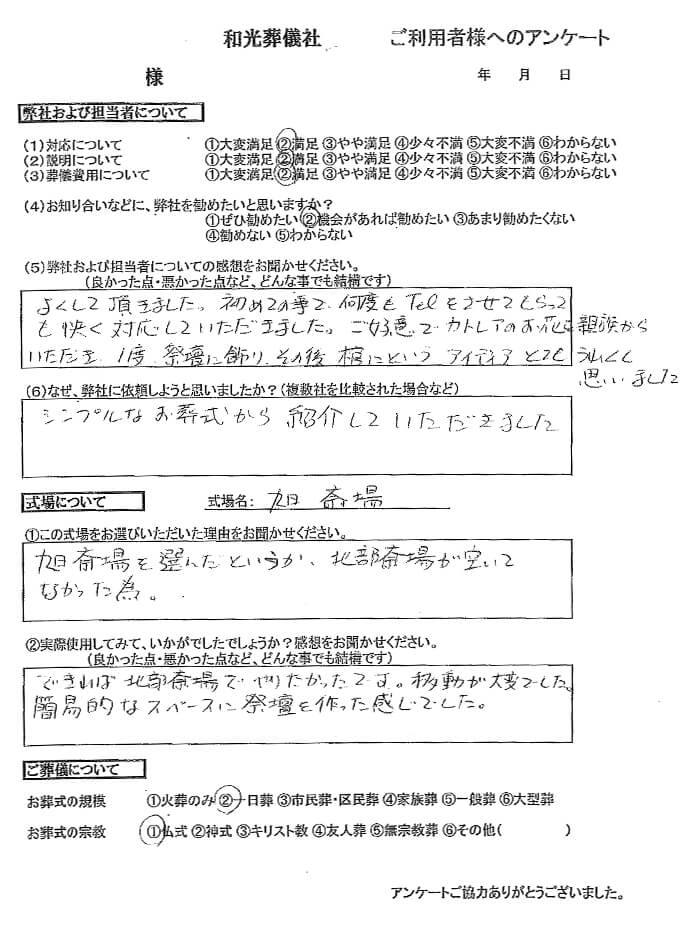 和光葬儀社 ご利用者様へのアンケート
様 年 月 日
弊社および担当者について
(1)対応について ①大変満足 ②満足 ③やや満足 ④少々不満 ⑤大変不満 ⑥わからない
(2)説明について ①大変満足 ②満足 ③やや満足 ④少々不満 ⑤大変不満 ⑥わからない
(3)葬儀費用について ①大変満足 ②満足 ③やや満足 ④少々不満 ⑤大変不満 ⑥わからない
(4)お知り合いなどに、弊社を勧めたいと思いますか?
①ぜひ勧めたい ②機会があれば勧めたい ③あまり勧めたくない
④勧めない ⑤わからない
(5)弊社および担当者についての感想をお聞かせください。
(良かった点・悪かった点など、どんな事でも結構です)
よくして頂きました。初めての事で、何度もTelをさせてもらって
も快く対応していただきました。ご好意でカトレアのお花を親族から
いただき、1度、祭壇に飾り、その後棺にというアイディアとてもうれしく
思いました
(6)なぜ、弊社に依頼しようと思いましたか?(複数社を比較された場合など)
シンプルなお葬式から紹介していただきました
式場について 式場名: 旭斎場
①この式場をお選びいただいた理由をお聞かせください。
旭斎場を選んだというか、北部斎場が空いて
なかった為。
②実際使用してみて、いかがでしたでしょうか?感想をお聞かせください。
(良かった点・悪かった点など、どんな事でも結構です)
できれば北部斎場でやりたかったです。移動が大変でした。
簡易的なスペースに祭壇を作った感じでした。
ご葬儀について
お葬式の規模 ①火葬のみ ②一日葬 ③市民葬・区民葬 ④家族葬 ⑤一般葬 ⑥大型葬
お葬式の宗教 ①仏式 ②神式 ③キリスト教 ④友人葬 ⑤無宗教葬 ⑥その他( )
アンケートご協力ありがとうございました。